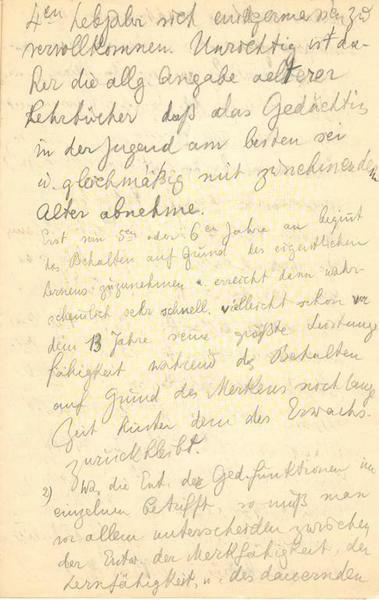 4en Lebjahr sich einigermassen zu
vervollkomnen. Unrichtig ist da-
her die allg Angabe aelterer
Lehrbücher daß das Gedächtis
in der Jugend am besten sei
u. gleichmäßig mit zunehmenden
Alter abnehme.
Erst vom 5en oder 6en Jahre an begint
das Behalten auf Grund des eigentlichen
Lernens zuzunehmen u. erreicht dann wahr-
scheinlich sehr schnell, vielleicht schon vor
dem 13 Jahre seine größte Leistungs
fähigkeit während das Behalten
auf Grund des Merkens noch lange
Zeit hinter dem des Erwachs.
zurückbleibt.
2) Was die Ent. der Ged. funktionen im
einzelnen betrifft, so muß man
vor allem unterscheiden zwischen
der Entw. der Merkfähigkeit, der
Lernfähigkeit, u. des dauernden